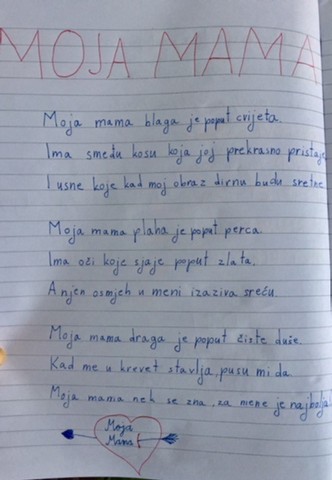 MOJA MAMA
Moja mama blaga je poput cvijeta.
Ima smeđu kosu koja joj prekrasno pristaje
I usne koje kad moj obraz dirnu budu sretne
Moja mama plaha je poput perca.
Ima oči koje sjaje poput zlata.
A njen osmjeh u meni izaziva sreću.
Moja mama draga je poput čiste duše.
Kad me u krevet stavlja, pusu mi da
Moja mama nek se zna, za mene je najbolja
Moja
Mama